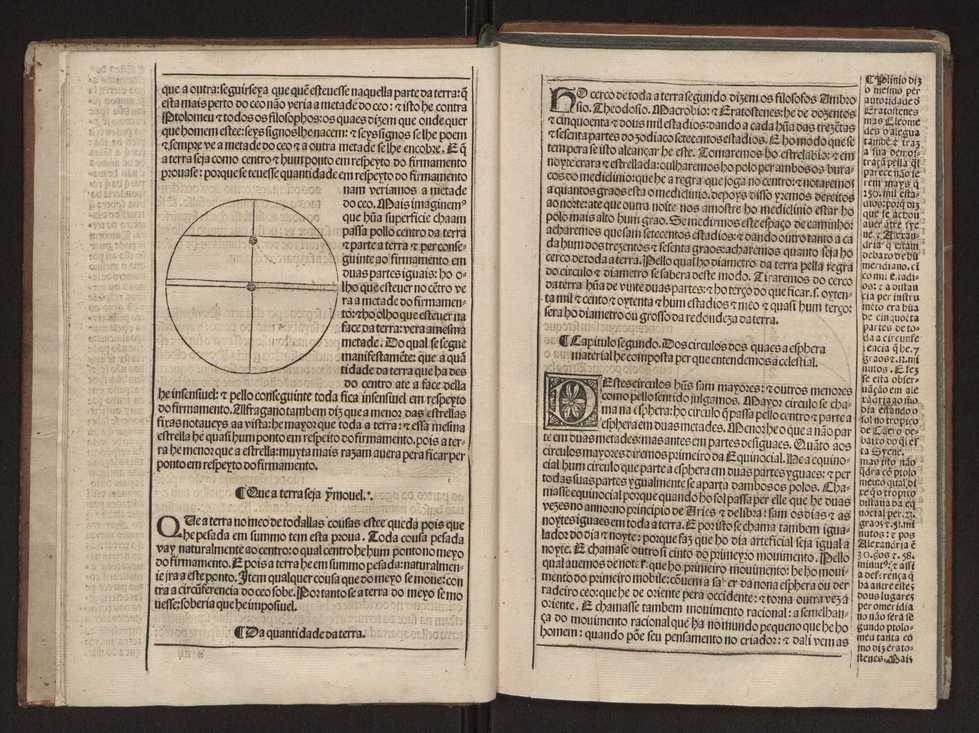 que a outra: seguirseya que quẽ esteuesse naquella parte da terra: q̃
esta mais perto do ceo não veria a metade do ceo: ⁊ isto he contra
Ptolomeu ⁊ todos os filosophos: os quaes dizem que onde quer
que homem estee: seys signos lhe nacem: ⁊ seys signos se lhe poem
⁊ sempre ve a metade do ceo ⁊ a outra metade se lhe encobre. E q̃
a terra seja como centro ⁊ hum ponto em respeyto do firmamento
prouase: porque se teuesse quantidade em respeyto do firmamento
nam veriamos a metade
do ceo. Mais imaginem⁹
que hũa superficie chaam
passa pollo centro da terra
⁊ parte a terra ⁊ per conse-
guinte ao firmamento em
duas partes iguais: ho o-
lho que esteuer no cẽtro ve
ra a metade do firmamen-
to: ⁊ ho olho que esteuer na
face da terra: vera a mesma
metade. Do qual se segue
manifestamẽte: que a quã
tidade da terra que ha des
do centro ate a face della
he insensiuel: ⁊ pello conseguinte toda fica insensiuel em respeyto
do firmamento. Alfragano tambem diz que a menor das estrellas
fixas notaueys aa vista: he mayor que toda a terra: ⁊ essa mesma
estrella he quasi hum ponto em respeito do firmamento. pois a ter-
ra he menor que a estrella: muyta mais razam auera pera ficar per
ponto em respeyto do firmamento.
¶ Que a terra seja ymouel.
QUe a terra no meo de todallas cousas estee queda pois que
he pesada em summo tem esta proua. Toda cousa pesada
vay naturalmente ao centro: o qual centro he hum ponto no meyo
do firmamento. E pois a terra he em summo pesada: naturalmen-
te jra a este ponto. Item qualquer cousa que do meyo se moue: con
tra a circũferencia do ceo sobe. Portanto se a terra do meyo se mo
uesse: soberia que he imposiuel.
¶ Da quantidade da terra.
HO cerco de toda a terra segundo dizem os filosofos Ambro
sio. Theodosio. Macrobio: ⁊ Eratostenes: he de dozentos
⁊ cinquoenta ⁊ dous mil estadios: dando a cada hũa das trezẽtas
⁊ sesenta partes do zodiaco setecentos estadios. E ho modo que se
tem pera se isto alcançar he este. Tomaremos ho estrelabio: ⁊ em
noyte crara ⁊ estrellada: oulharemos ho polo per ambos os bura-
cos do mediclinio: que he a regra que joga no centro: ⁊ notaremos
a quantos graos esta o mediclinio. depoys disso yremos dereitos
ao norte: ate que outra noite nos amostre ho mediclinio estar ho
polo mais alto hum grao. Se medirmos este espaço de caminho:
acharemos que sam setecentos estadios: ⁊ dando outro tanto a ca
da hum dos trezentos ⁊ sesenta graos: acharemos quanto seja ho
cerco de toda a terra. Pello qual ho diametro da terra pella regra
do circulo ⁊ diametro se sabera deste modo. Tiraremos do cerco
da terra hũa de vinte duas partes: ⁊ ho terço do que ficar. s. oyten-
ta mil ⁊ cento ⁊ oytenta ⁊ hum estadios ⁊ meo ⁊ quasi hum terço:
sera ho diametro ou grosso da redondeza da terra.
¶ Capitulo segundo. Dos circulos dos quaes a esphera
material he composta per que entendemos a celestial.
DEstes circulos hũs sam mayores: ⁊ outros menores
como pello sentido julgamos. Mayor circulo se cha-
ma na esphera: ho circulo q̃ passa pello centro ⁊ parte a
esphera em duas metades. Menor: he o que a não par
te em duas metades: mas antes em partes desiguaes. Quãto aos
circulos mayores diremos primeiro da Equinocial. He a equino-
cial hum circulo que parte a esphera em duas partes yguaes: ⁊ per
todas suas partes ygualmente se aparta dambos os polos. Cha-
masse equinocial porque quando ho sol passa per elle que he duas
vezes no anno: no principio de Aries ⁊ de libra: sam os dias ⁊ as
noytes iguaes em toda a terra. E por isto se chama tambem igua-
lador do dia ⁊ noyte: porque faz que ho dia arteficial seja igual a
noyte. E chamase outro si cinto do primeyro mouimento. Pello
qual auemos de notar que ho primeiro mouimento: he ho moui-
mento do primeiro mobile: cõuem a saber da nona esphera ou der
radeiro ceo: que he de oriente pera occidente: ⁊ torna outra vez a
oriente. E chamasse tambem mouimento racional: a semelhan-
ça do mouimento racional que ha no mundo pequeno que he ho
homem: quando põe seu pensamento no criador: ⁊ dali vem as
¶ Plinio diz
o mesmo per
autoridade d̃
Eratostenes
mas Cleome
des o alegua
tambẽ ⁊ traz
a sua demos-
traçã pella q̃l
parece não se
rem mays q̃
250. mil esta-
dios: porq̃ diz
que se achou
auer ãtre sye
ne. ⁊ Alexan-
dria q̃ estam
debaxo de hũ
meridiano. ci
co mil estadi-
os: ⁊ a distan
cia per instru
mẽto era hũa
de cinquoẽta
partes de to-
da a circunfe
rẽcia q̃ he. 7.
graos ⁊. 12. mi
nutos. E fez
se esta obser-
uação em ale
xãdria ao mẽo
dia estando o
sol no tropico
de Cãcro de-
baixo do q̃l es
ta Syene.
mas isto não
q̃dra cõ ptolo
meu